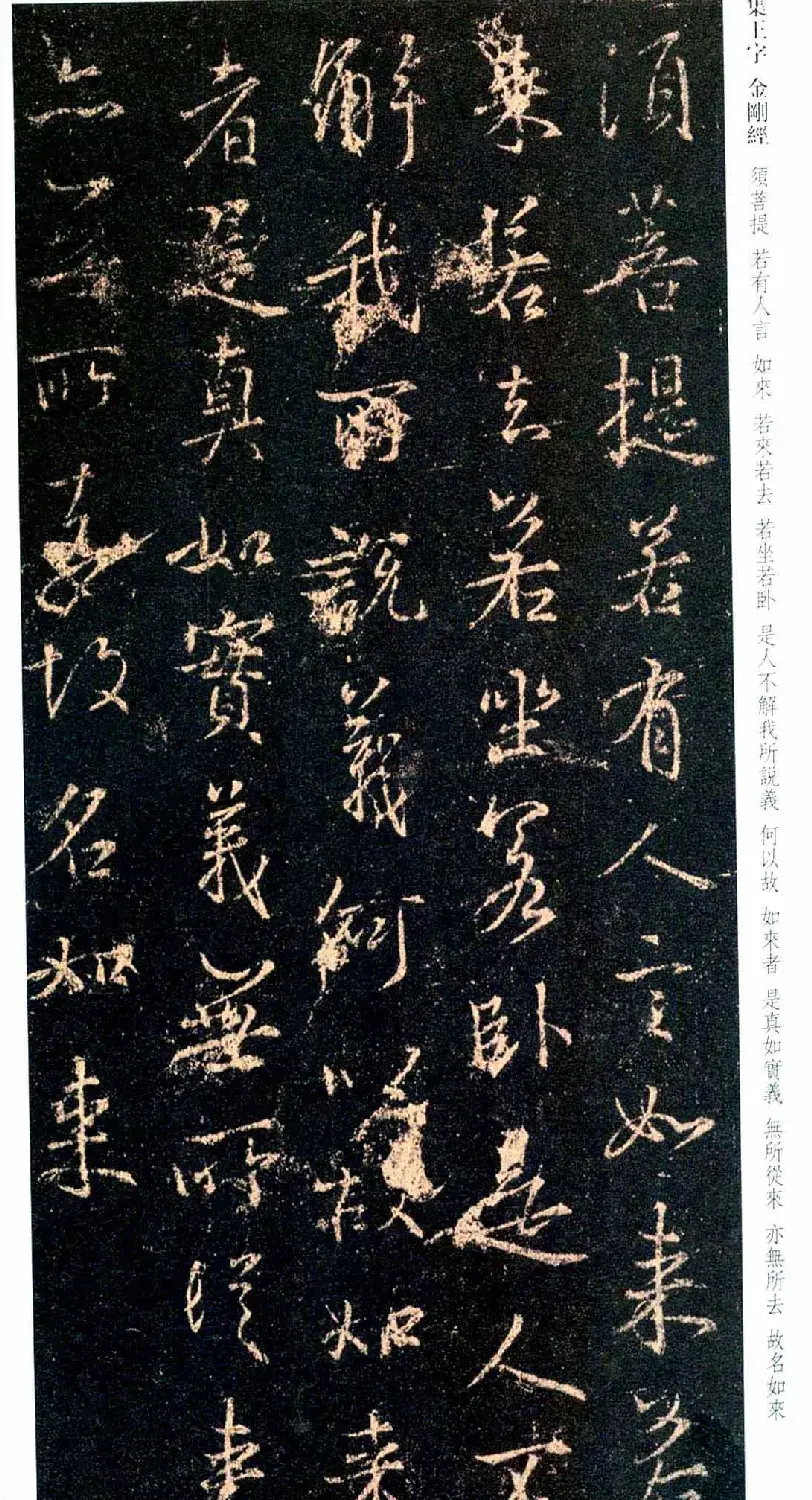 集王字 金剛經 須菩提 若有人言 如來 若來若去 若坐若卧 是人不解我所説義 何以故 如來者 是真如實義 無所從來 亦無所去 故名如來
須菩提若有人言如来若
来若去若坐若卧是人不
解我所説義何以故如来
者是真如實義無所從来
亦無所去故名如来